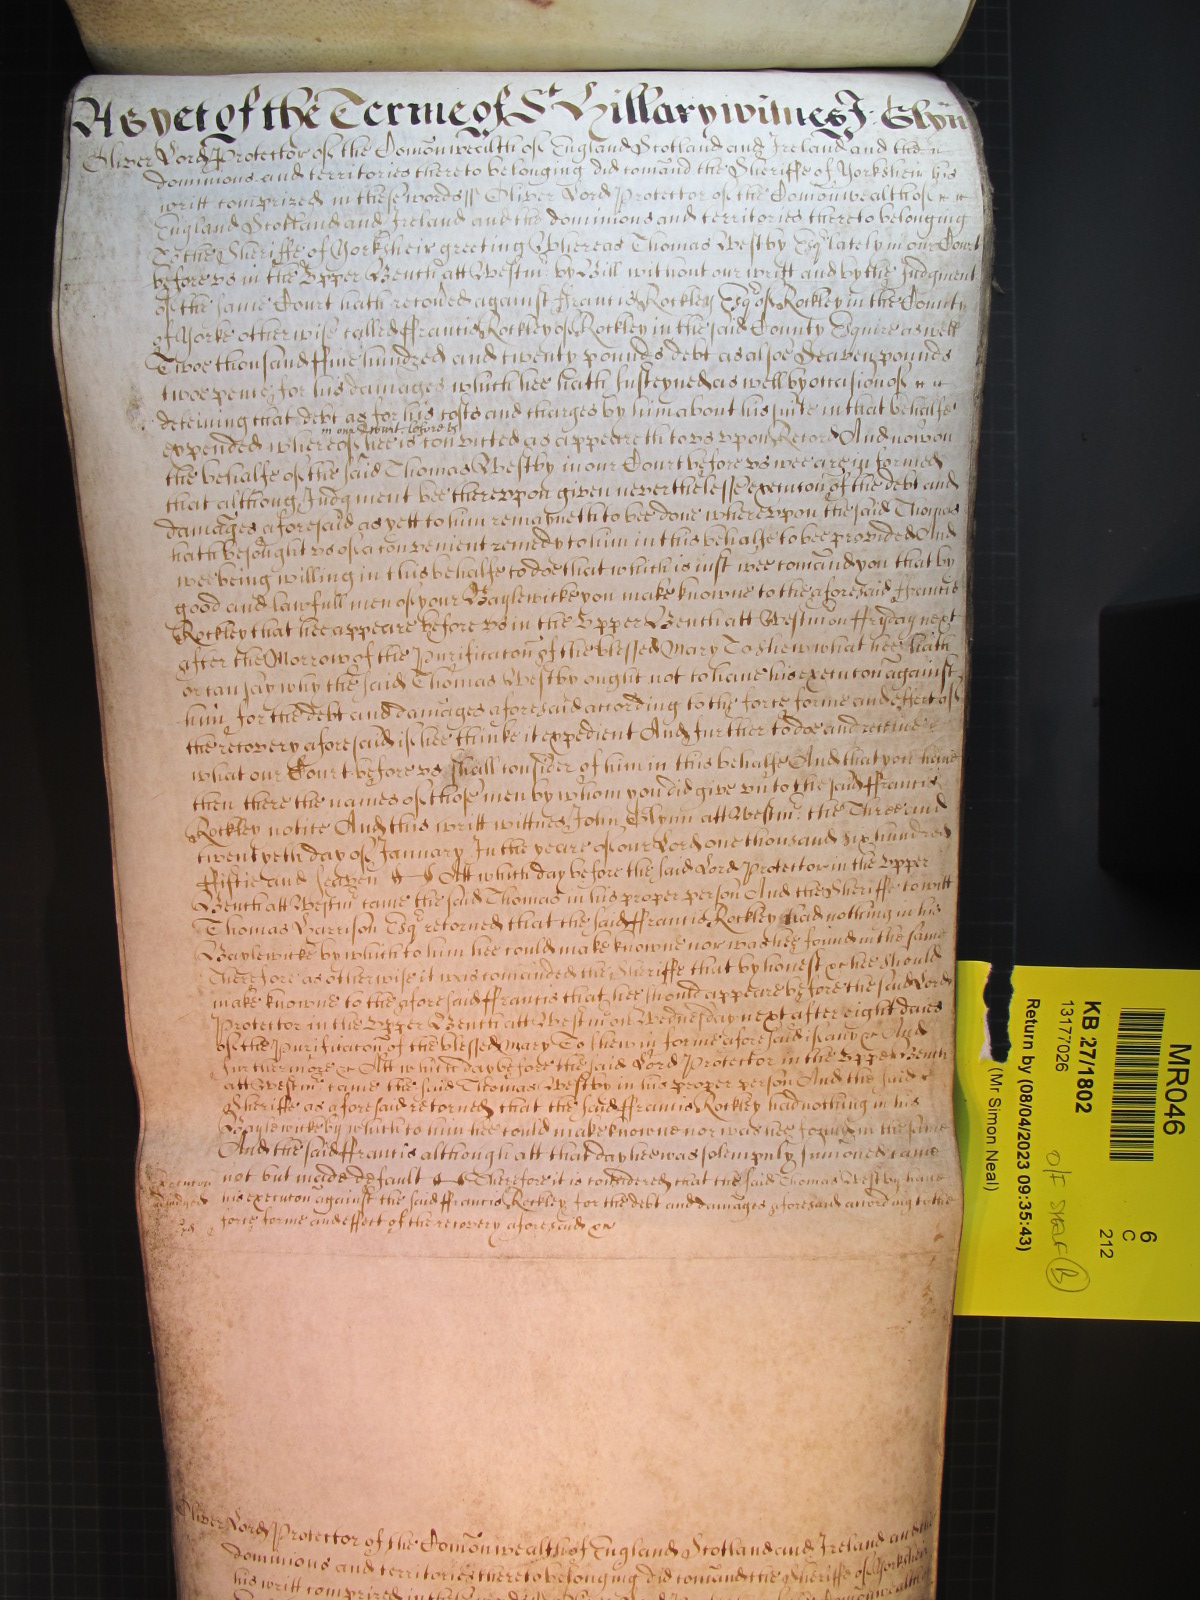 As yet of the Terme of St Hillary witnes J: Glyn
Oliver Lord Protector of the Comonwealth of England Scotland and Ireland and the
dominions and territories thereto belonging did comand the Sheriffe of Yorksheir his
writt comprized in these words ss Oliver Lord Protector of the Comonwealth of
England Scotland and Ireland and the dominions and territories thereto belonging
To the Sheriffe of Yorksheir greeting Whereas Thomas Westby Esqr lately in our Court
before us in the Upper Bench att Westmr by Bill without our writt and by the Judgment
of the same Court hath recoved against Francis Rockley Esqr of Rockley in the County
of Yorke otherwise called ffrancis Rockley of Rockley in the said County Esquire aswell
Twoe thousand ffive hundred and twenty pounds debt as alsoe Seaven pounds
twoe pence for his damages which hee hath susteyned as well by occasion of
deteining that debt as for his costs and charges by him about his suite in that behalfe
in our Court before us
expended whereof hee is convicted as appeareth to us upon Record And now on
the behalfe of the said Thomas Westby in our Court before us wee are informed
that although Judgment bee thereupon given neverthelesse execucon of the debt and
damages aforesaid as yett to him remayneth to bee done whereupon the said Thomas
hath besought us of a convenient remedy to him in this behalfe to bee provided And
wee being willing in this behalfe to doe that which is just wee comand you that by
good and lawfull men of your Baylewicke you make knowne to the aforesaid ffrancis
Rockley that hee appeare before us in the Upper Bench att Westm on ffryday next
after the Morrow of the Purificacon of the blessed Mary To shew what hee hath
or can say why the said Thomas Westby ought not to have his execucon against
him for the debt and damages aforesaid according to the force forme and effect of
the recovery aforesaid if hee thinke it expedient And further to doe and receive
what our Court before us shall consider of him in this behalfe And that you have
then there the names of those men by whom you did give unto the said ffrancis
Rockley notice And this writt wittnes John Glynn att Westmr the Three and
twentyeth day of January In the yeare of our Lord one thousand six hundred
ffiftie and seaven Att which day before the said Lord Protector in the Upper
Bench att Westmr came the said Thomas in his proper person And the Sheriffe to witt
Thomas Harrison Esqr retorned that the said ffrancis Rockley had nothing in his
Baylewicke by which to him hee could make knowne nor was hee found in the same
Therefore as otherwise it was comanded the Sheriffe that by honest &c hee should
make knowne to the aforesaid ffrancis that hee should appeare before the said Lord
Protector in the Upper Bench att Westmr on Wednesday next after eight daies
of the Purificacon of the blessed Mary To shew in forme aforesaid if any &c And
furthermore &c Att which day before the said Lord Protector in the Upper Bench
att Westmr came the said Thomas Westby in his proper person And the said
Sheriffe as aforesaid retorned that the said ffrancis Rockley had nothing in his
Baylewicke by which to him hee could make knowne nor was hee found in the same
And the said ffrancis although att that day hee was solempnly sumoned came
not but made default Therefore it is considered that the said Thomas Westby have
his execucon against the said ffrancis Rockley for the debt and damages aforesaid according to the
force forme and effect of the recovery aforesaid &c
Execucon
adiudged
Oliver Lord Protector of the Comonwealth of England Scotland and Ireland and the
dominions and territories thereto belonging did comand the Sheriffe of Yorksheir
his writt comprized in these
MR046
6
C
212
KB 27/1802
13177026
O/F SHELF (B)
Return by (08/04/2023 09:35:43)
(Mr Simon Neal)